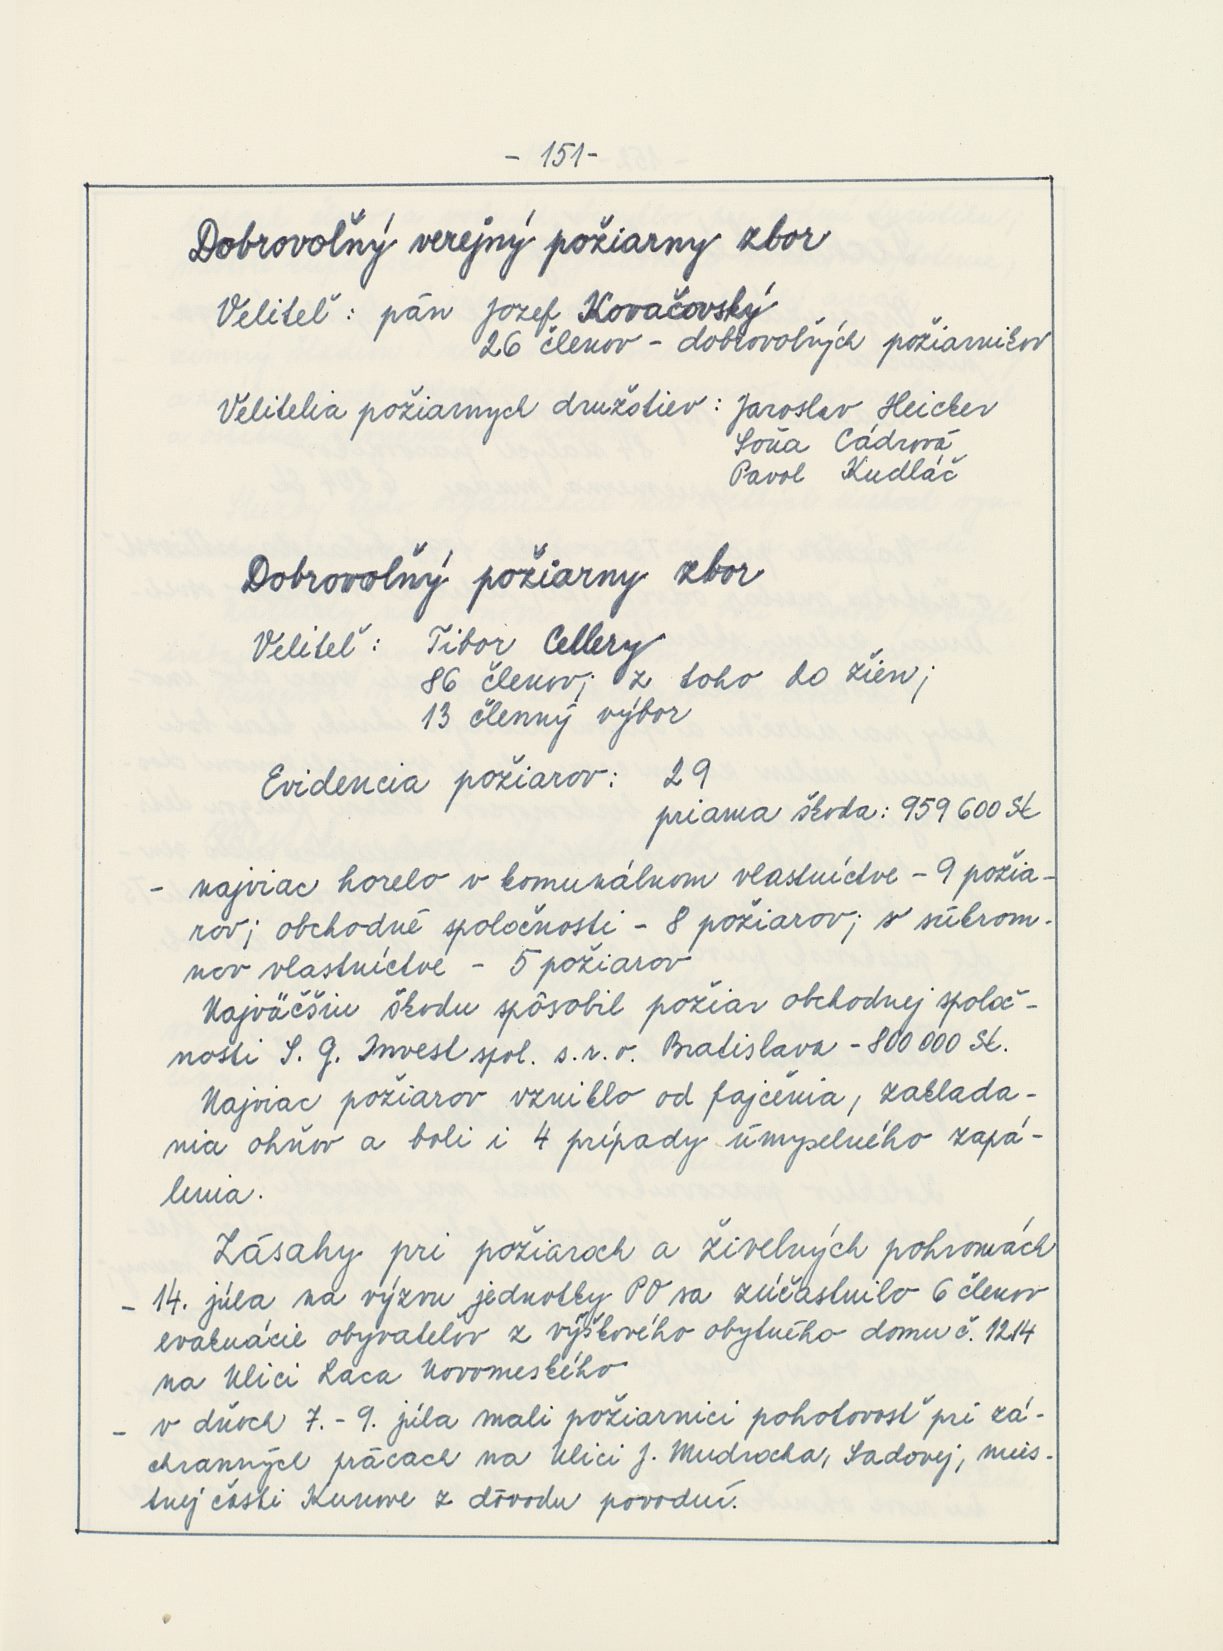 - 151 -
Dobrovoľný verejný požiarny zbor
Veliteľ : pán Jozef Kovačovský
26 členov - dobrovoľných požiarnikov
Velitelia požiarnych družstiev : Jaroslav Heicker
Soňa Cádrová
Pavol Kudláč
Dobrovoľný požiarny zbor
Veliteľ : Tibor Cellery
86 členov; z toho 20 žien;
13 členný výbor
Evidencia požiarov : 29
priama škoda : 959 600 Sk
- najviac horelo v komunálnom vlastníctve - 9 požia-
rov; obchodné spoločnosti - 8 požiarov; v súkrom-
nov vlastníctve - 5 požiarov
Najväčšiu škodu spôsobil požiar obchodnej spoloč-
nosti S. G. Invest spol. s.r.o. Bratislava - 800 000 Sk.
Najviac požiarov vzniklo od fajčenia, zaklada-
nia ohňov a boli i 4 prípady úmyselného zapá-
lenia.
Zásahy pri požiaroch a živelných pohromách
- 14. júla na výzvu jednotky PO sa zúčastnilo 6 členov
evakuácie obyvateľov z výškového obytného domu č. 1214
na Ulici Laca Novomeského
- v dňoch 7. - 9. júla mali požiarnici pohotovosť pri zá-
chranných prácach na Ulici J. Mudrocha, Sadovej, mies-
tnej časti Kunove z dôvodu povodní.